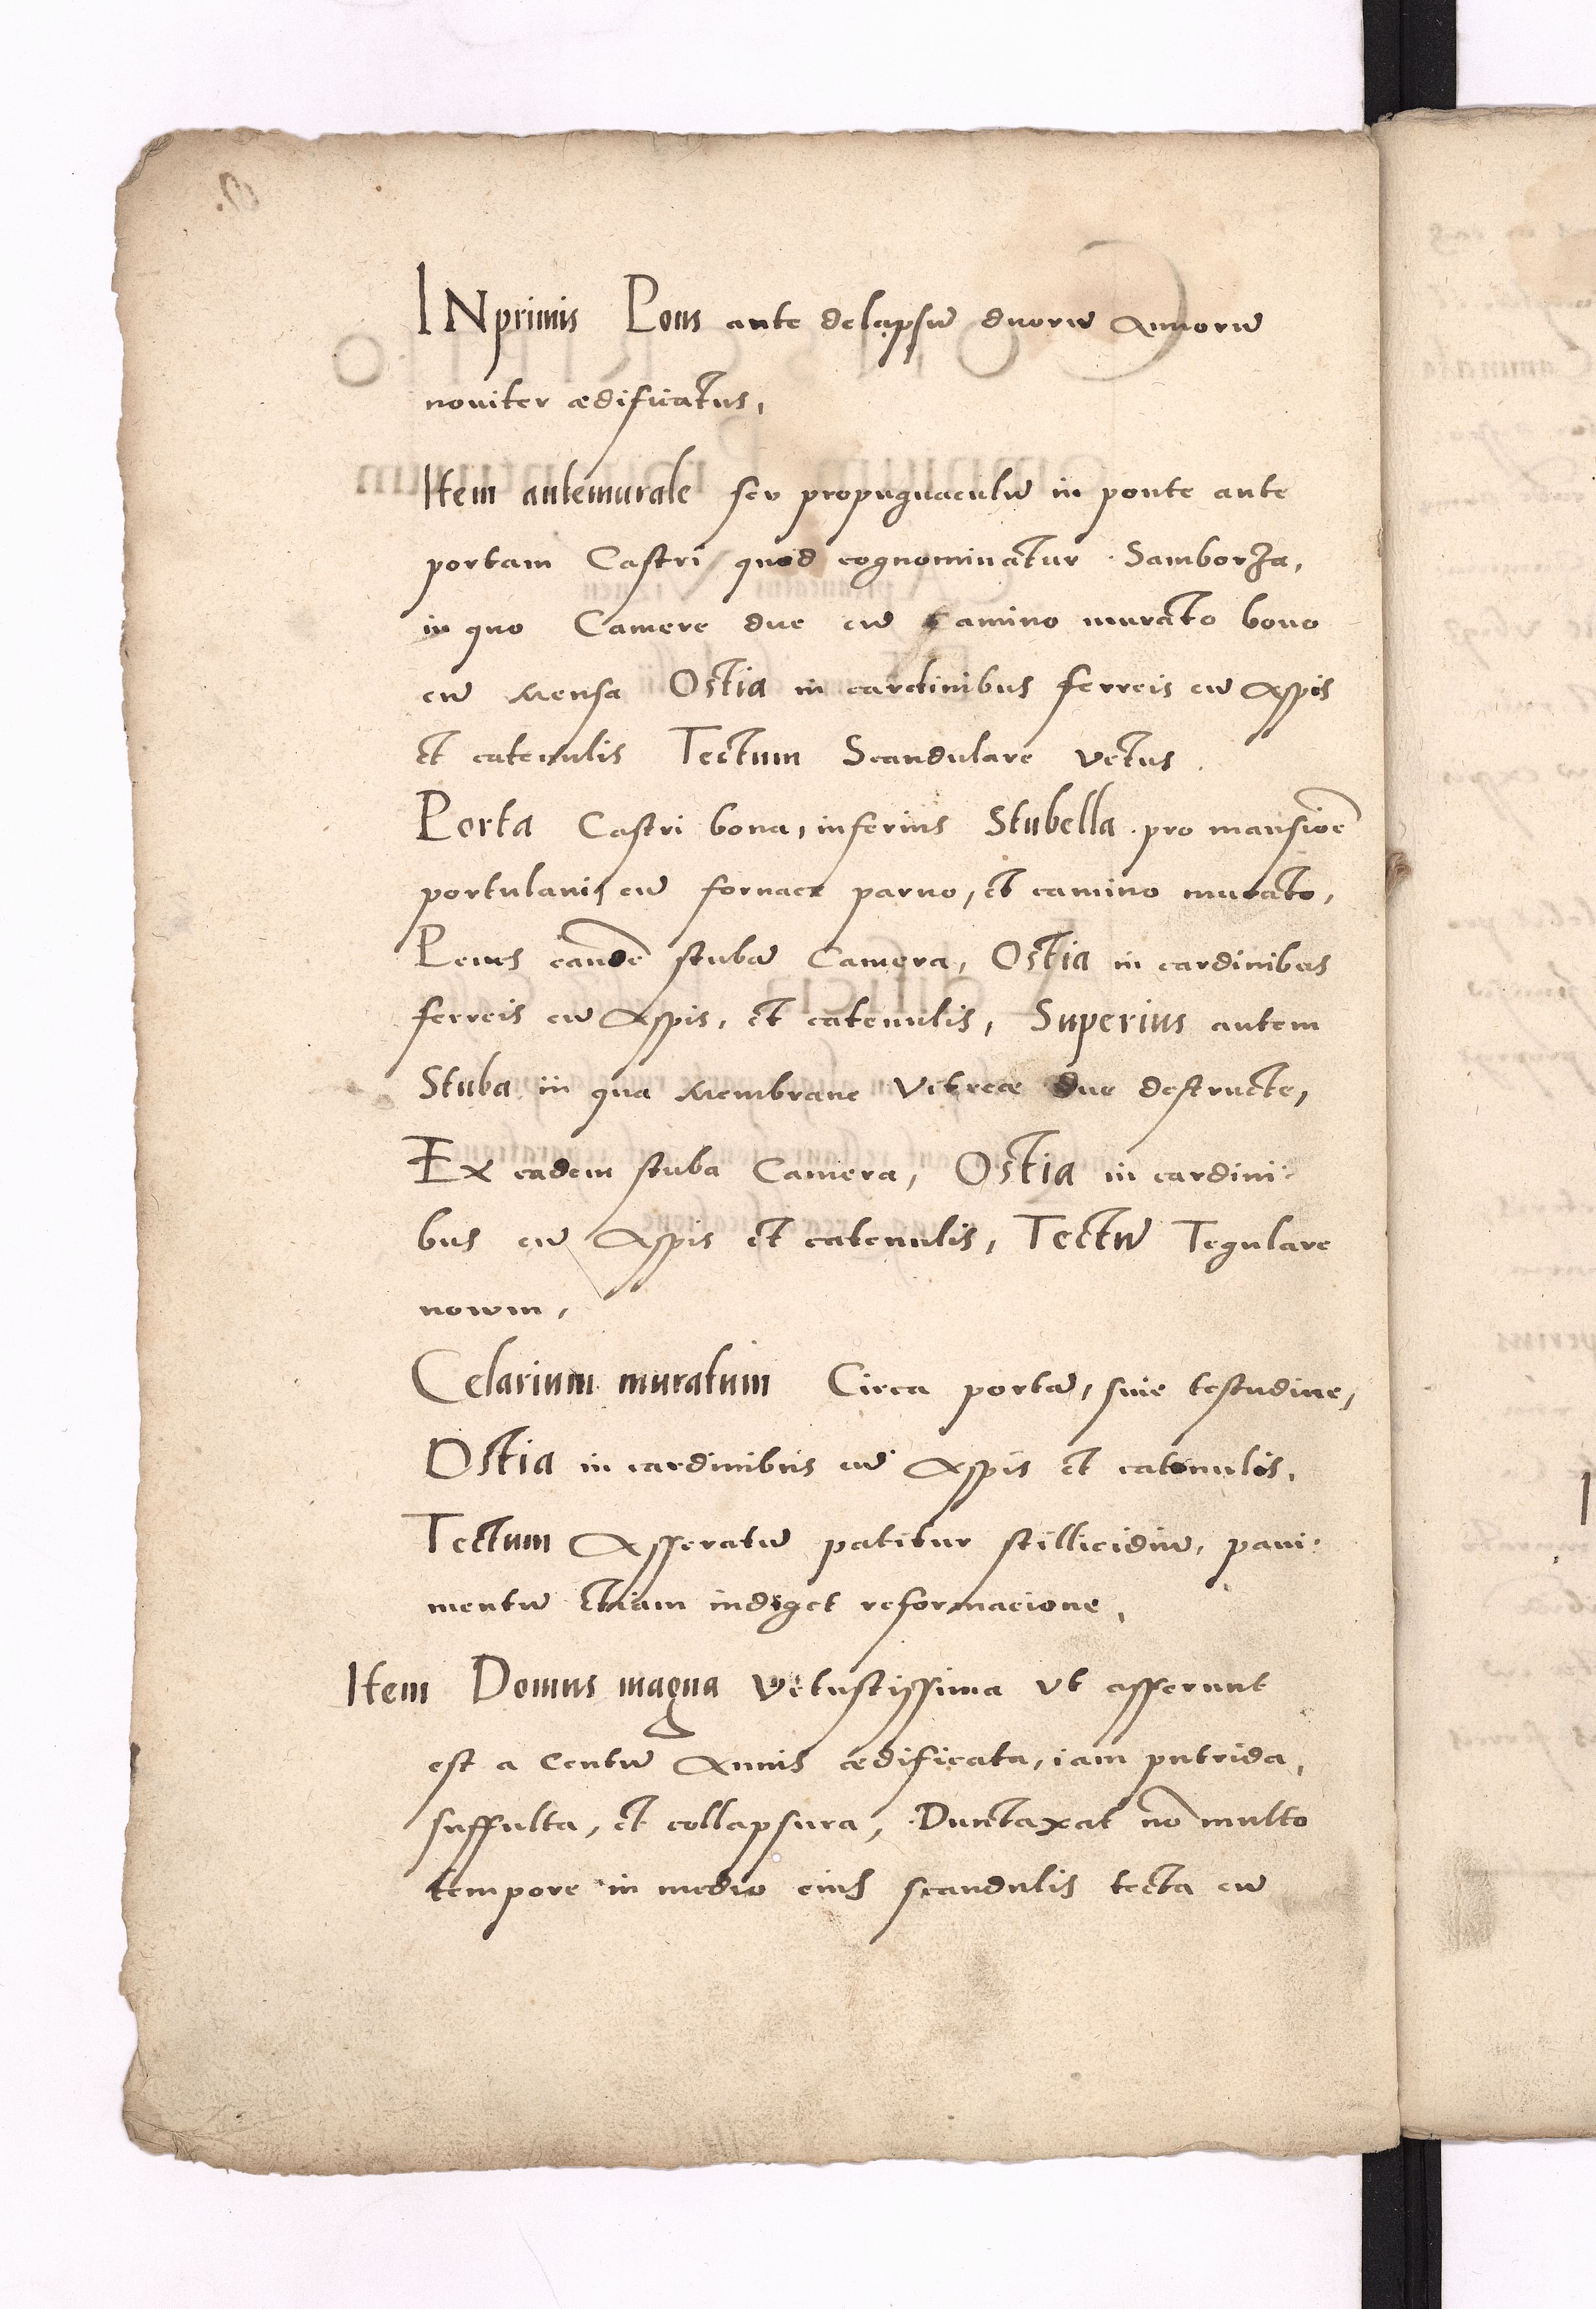 INprimis Pons ante delapsū duorū Annorū
nouiter ædificatus,
Item antemurale seu propugnaculū in ponte ante
portam Castri quod cognominatur Samborza,
in quo Camere due cū camino murato bono
cū Mensa Ostia in cardinibus ferreis cū Appis
et catenulis Tectum Scandulare vetus.
Porta Castri bona, inferius Stubella pro mansioē
portulani, cū fornace paruo, et camino murato,
Penes eandē stubā Camera, Ostia in cardinibus
ferreis cū Appis, et catenulis, Superius autem
Stuba in qua Membrane Vitreæ due destructe,
Ex eadem stuba Camera, Ostia in cardini-
bus cū Appis et catenulis, Tectū Tegulare
nouum,
Celarium muratum Circa portā, siue testudine,
Ostia in cardinibus cū Appis et catenulis,
Tectum Asseratū patitur stillicidiū, paui-
mentū etiam indiget reformacione,
Item Domus magna vetustissima vt asserunt
est a Centū Annis ædificata, iam putrida,
suffulta, et collapsura, Duntaxat nō multo
tempore in medio eius scandulis tecta cū